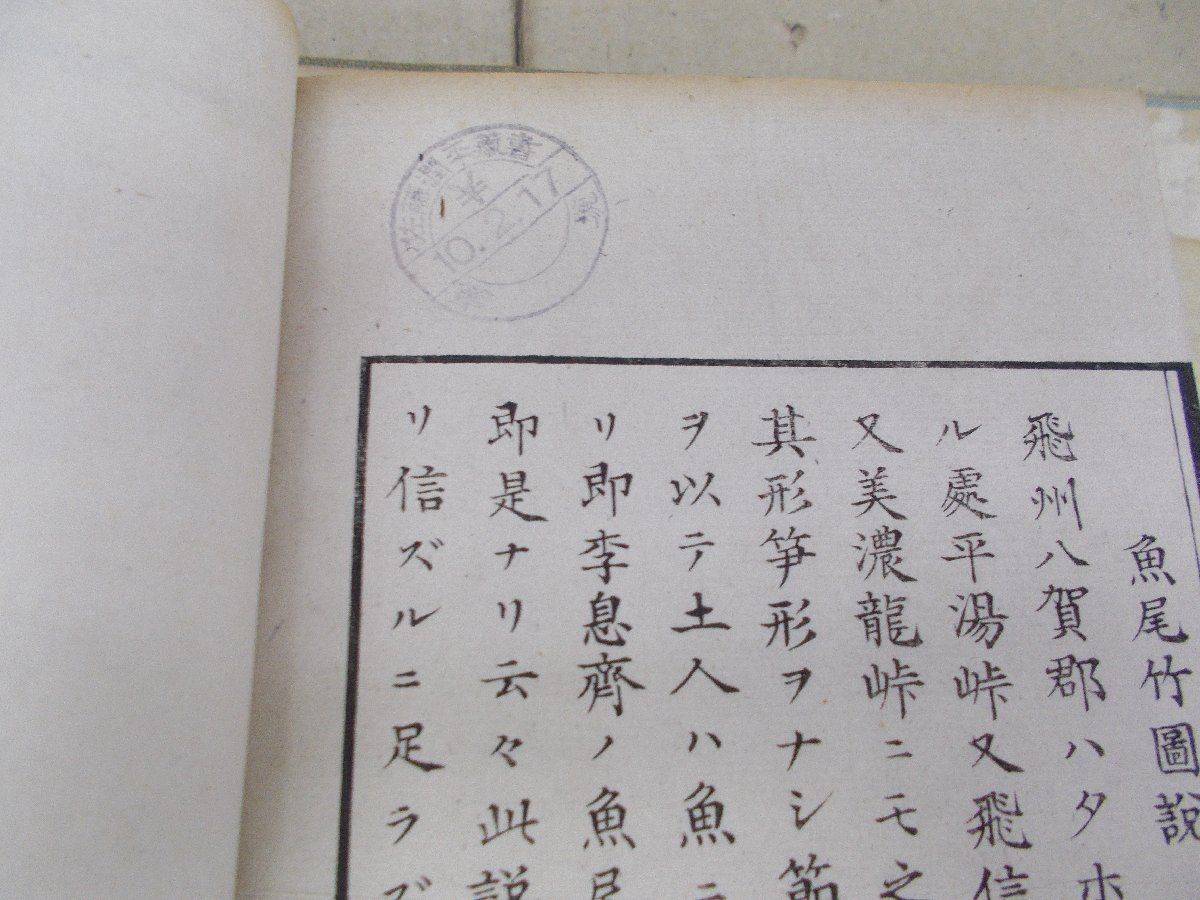 10.2.17
魚尾竹圖説
飛州八賀郡ハタホ
ル處平湯峠又飛信
又美濃龍峠ニモ之
其形笋形ヲナシ節
ヲ以テ土人ハ魚ニ
リ即李息齊ノ魚尾
即是ナリ云々此説
リ信ズルニ足ラズ